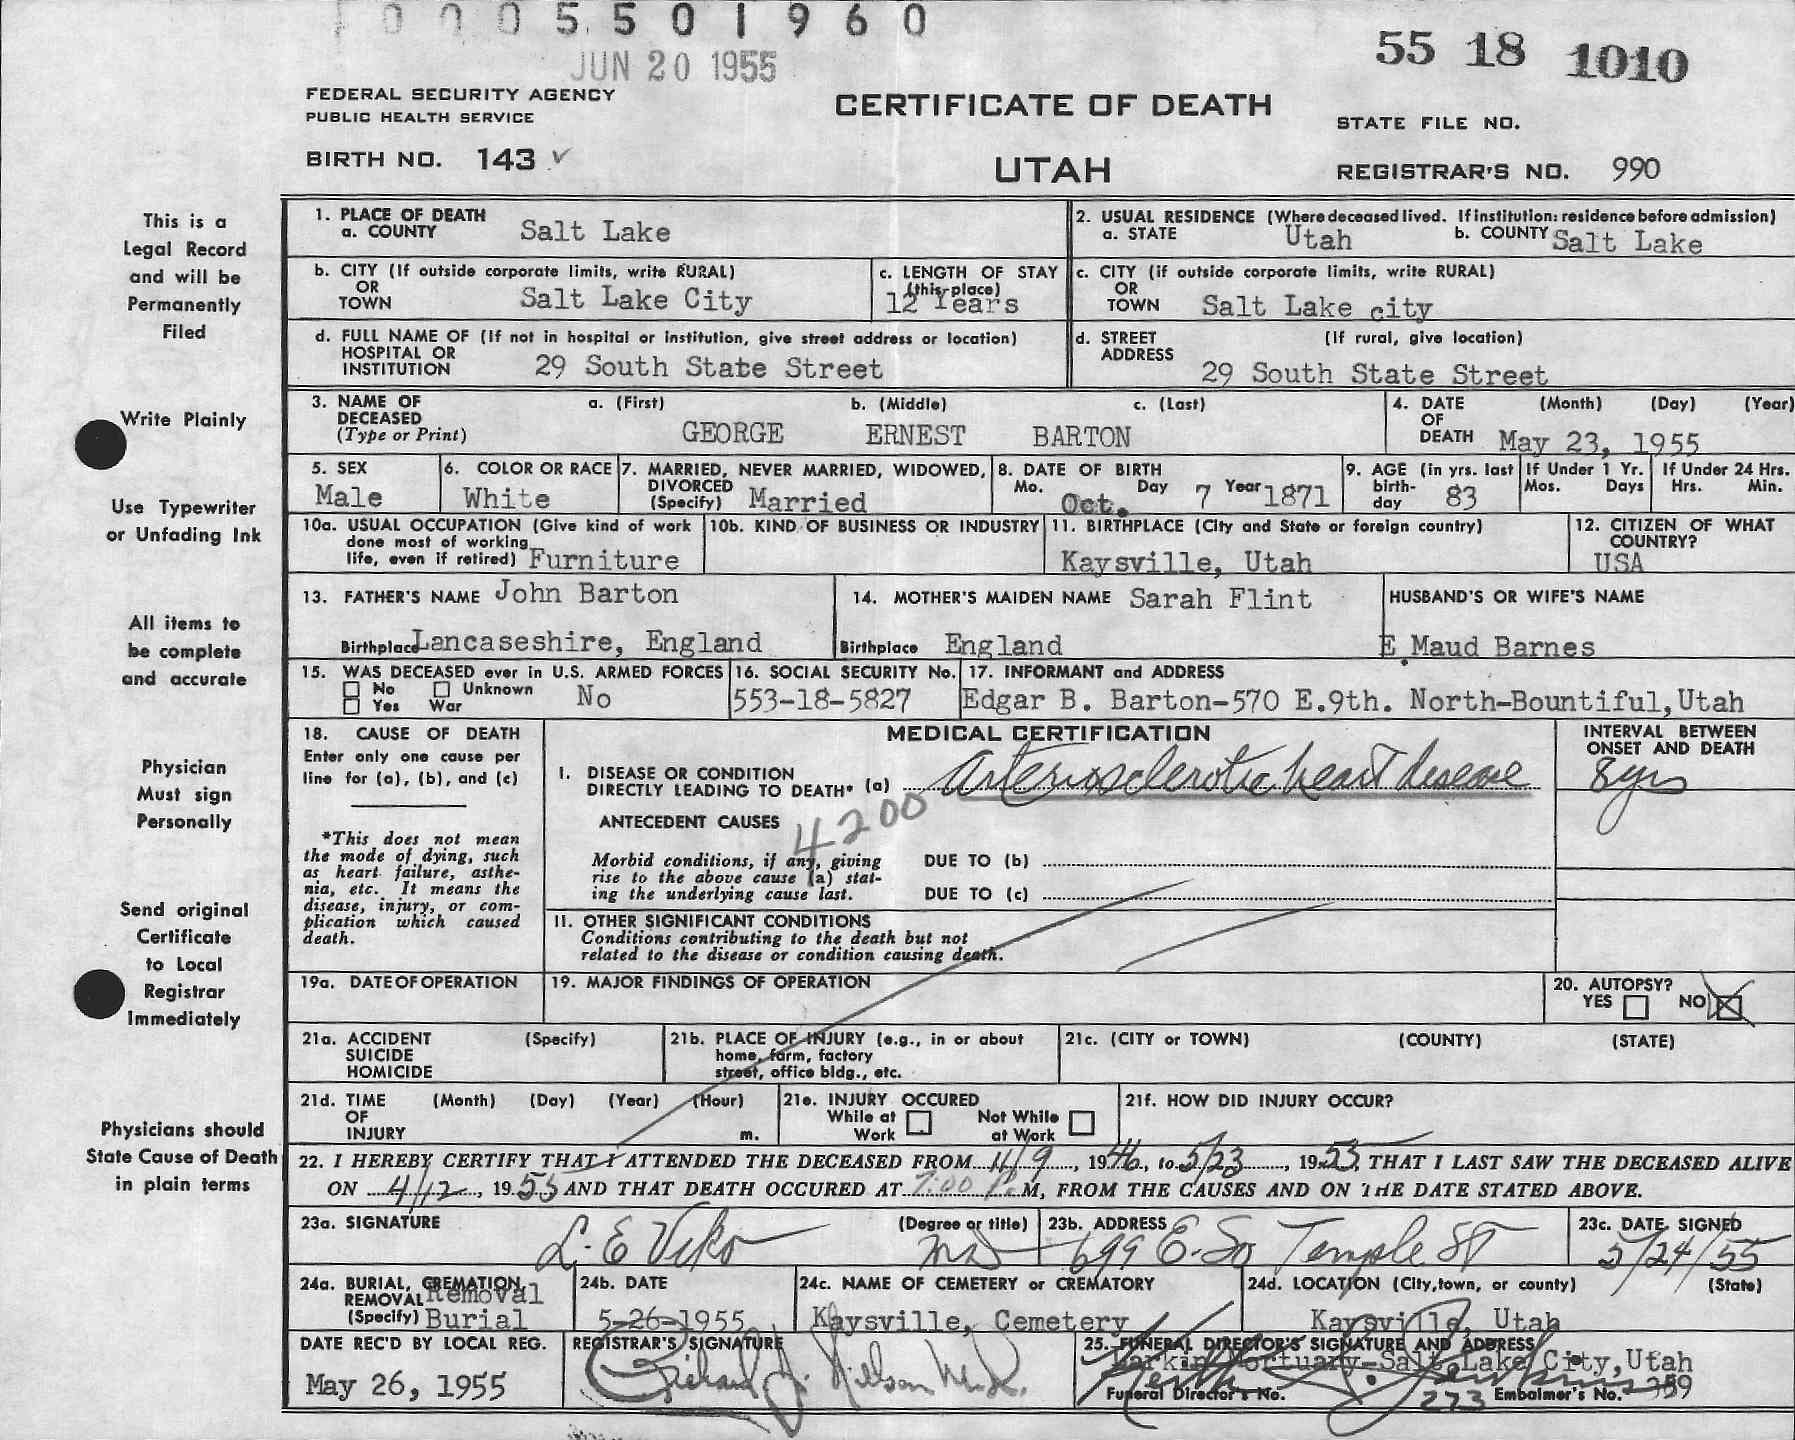 0 0 0 5 5 0 1 9 6 0
JUN 20 1955
55 18 1010
FEDERAL SECURITY AGENCY
PUBLIC HEALTH SERVICE
CERTIFICATE OF DEATH
STATE FILE NO.
BIRTH NO. 143
UTAH
REGISTRAR'S NO. 990
This is a
Legal Record
and will be
Permanently
Filed
Write Plainly
Use Typewriter
or Unfading Ink
All items to
be complete
and accurate
Physician
Must sign
Personally
Send original
Certificate
to Local
Registrar
Immediately
Physicians should
State Cause of Death
in plain terms
1. PLACE OF DEATH
a. COUNTY Salt Lake
2. USUAL RESIDENCE (Where deceased lived. If institution: residence before admission)
a. STATE Utah b. COUNTY Salt Lake
b. CITY (If outside corporate limits, write RURAL)
OR
TOWN Salt Lake City
c. LENGTH OF STAY
(this place)
12 Years
c. CITY (if outside corporate limits, write RURAL)
OR
TOWN Salt Lake city
d. FULL NAME OF (If not in hospital or institution, give street address or location)
HOSPITAL OR
INSTITUTION 29 South State Street
d. STREET (If rural, give location)
ADDRESS
29 South State Street
3. NAME OF a. (First) b. (Middle) c. (Last)
DECEASED
(Type or Print) GEORGE ERNEST BARTON
4. DATE (Month) (Day) (Year)
OF
DEATH May 23, 1955
5. SEX
Male
6. COLOR OR RACE
White
7. MARRIED, NEVER MARRIED, WIDOWED,
DIVORCED
(Specify) Married
8. DATE OF BIRTH
Mo. Day Year
Oct. 7 1871
9. AGE (in yrs. last
birth-
day 83
If Under 1 Yr.
Mos. Days
If Under 24 Hrs.
Hrs. Min.
10a. USUAL OCCUPATION (Give kind of work
done most of working
life, even if retired) Furniture
10b. KIND OF BUSINESS OR INDUSTRY
11. BIRTHPLACE (City and State or foreign country)
Kaysville, Utah
12. CITIZEN OF WHAT
COUNTRY?
USA
13. FATHER'S NAME John Barton
Birthplace Lancaseshire, England
14. MOTHER'S MAIDEN NAME Sarah Flint
Birthplace England
HUSBAND'S OR WIFE'S NAME
E Maud Barnes
15. WAS DECEASED ever in U.S. ARMED FORCES
No Unknown
Yes War No
16. SOCIAL SECURITY No.
553-18-5827
17. INFORMANT and ADDRESS
Edgar B. Barton-570 E.9th. North-Bountiful,Utah
18. CAUSE OF DEATH
Enter only one cause per
line for (a), (b), and (c)
*This does not mean
the mode of dying, such
as heart failure, asthe-
nia, etc. It means the
disease, injury, or com-
plication which caused
death.
MEDICAL CERTIFICATION
I. DISEASE OR CONDITION
DIRECTLY LEADING TO DEATH* (a) Arteriosclerotic heart disease
INTERVAL BETWEEN
ONSET AND DEATH
8 yrs
4200
ANTECEDENT CAUSES
Morbid conditions, if any, giving
rise to the above cause (a) stat-
ing the underlying cause last.
DUE TO (b)
DUE TO (c)
II. OTHER SIGNIFICANT CONDITIONS
Conditions contributing to the death but not
related to the disease or condition causing death.
19a. DATE OF OPERATION
19. MAJOR FINDINGS OF OPERATION
20. AUTOPSY?
YES NO
21a. ACCIDENT (Specify)
SUICIDE
HOMICIDE
21b. PLACE OF INJURY (e.g., in or about
home, farm, factory
street, office bldg., etc.
21c. (CITY or TOWN) (COUNTY) (STATE)
21d. TIME (Month) (Day) (Year) (Hour)
OF
INJURY m.
21e. INJURY OCCURED
While at Not While
Work at Work
21f. HOW DID INJURY OCCUR?
22. I HEREBY CERTIFY THAT I ATTENDED THE DECEASED FROM 11/9, 1946, to 5/23, 1955, THAT I LAST SAW THE DECEASED ALIVE
ON 4/12, 1955 AND THAT DEATH OCCURED AT 7:00 P.M, FROM THE CAUSES AND ON THE DATE STATED ABOVE.
23a. SIGNATURE (Degree or title)
L. E Viko MD
23b. ADDRESS
699 E. So Temple St
23c. DATE SIGNED
5/24/55
24a. BURIAL, CREMATION,
REMOVAL Removal
(Specify) Burial
24b. DATE
5-26-1955
24c. NAME OF CEMETERY or CREMATORY
Kaysville, Cemetery
24d. LOCATION (City, town, or county) (State)
Kaysville, Utah
DATE REC'D BY LOCAL REG.
May 26, 1955
REGISTRAR'S SIGNATURE
Richard J. Nelson M.D.
25. FUNERAL DIRECTOR'S SIGNATURE AND ADDRESS
Larkin Mortuary-Salt Lake City,Utah
Funeral Director's No. 273 Embalmer's No. 359